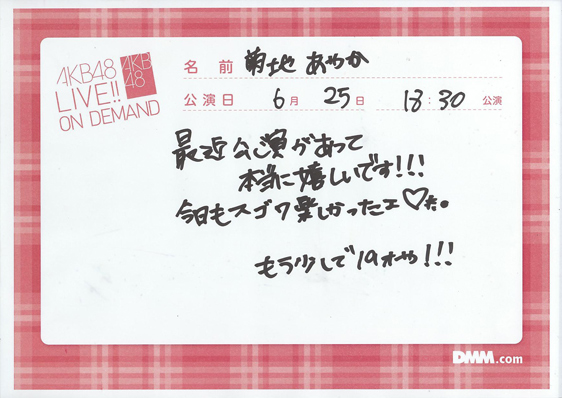 AKB48
LIVE!!
ON DEMAND
AKB
48
名前 菊地あやか
公演日 6月 25日 18:30 公演
最近公演があって
本当に嬉しいです!!!
今日もスゴク楽しかったェ♡た。
もう少しで19才や!!!
DMM.com